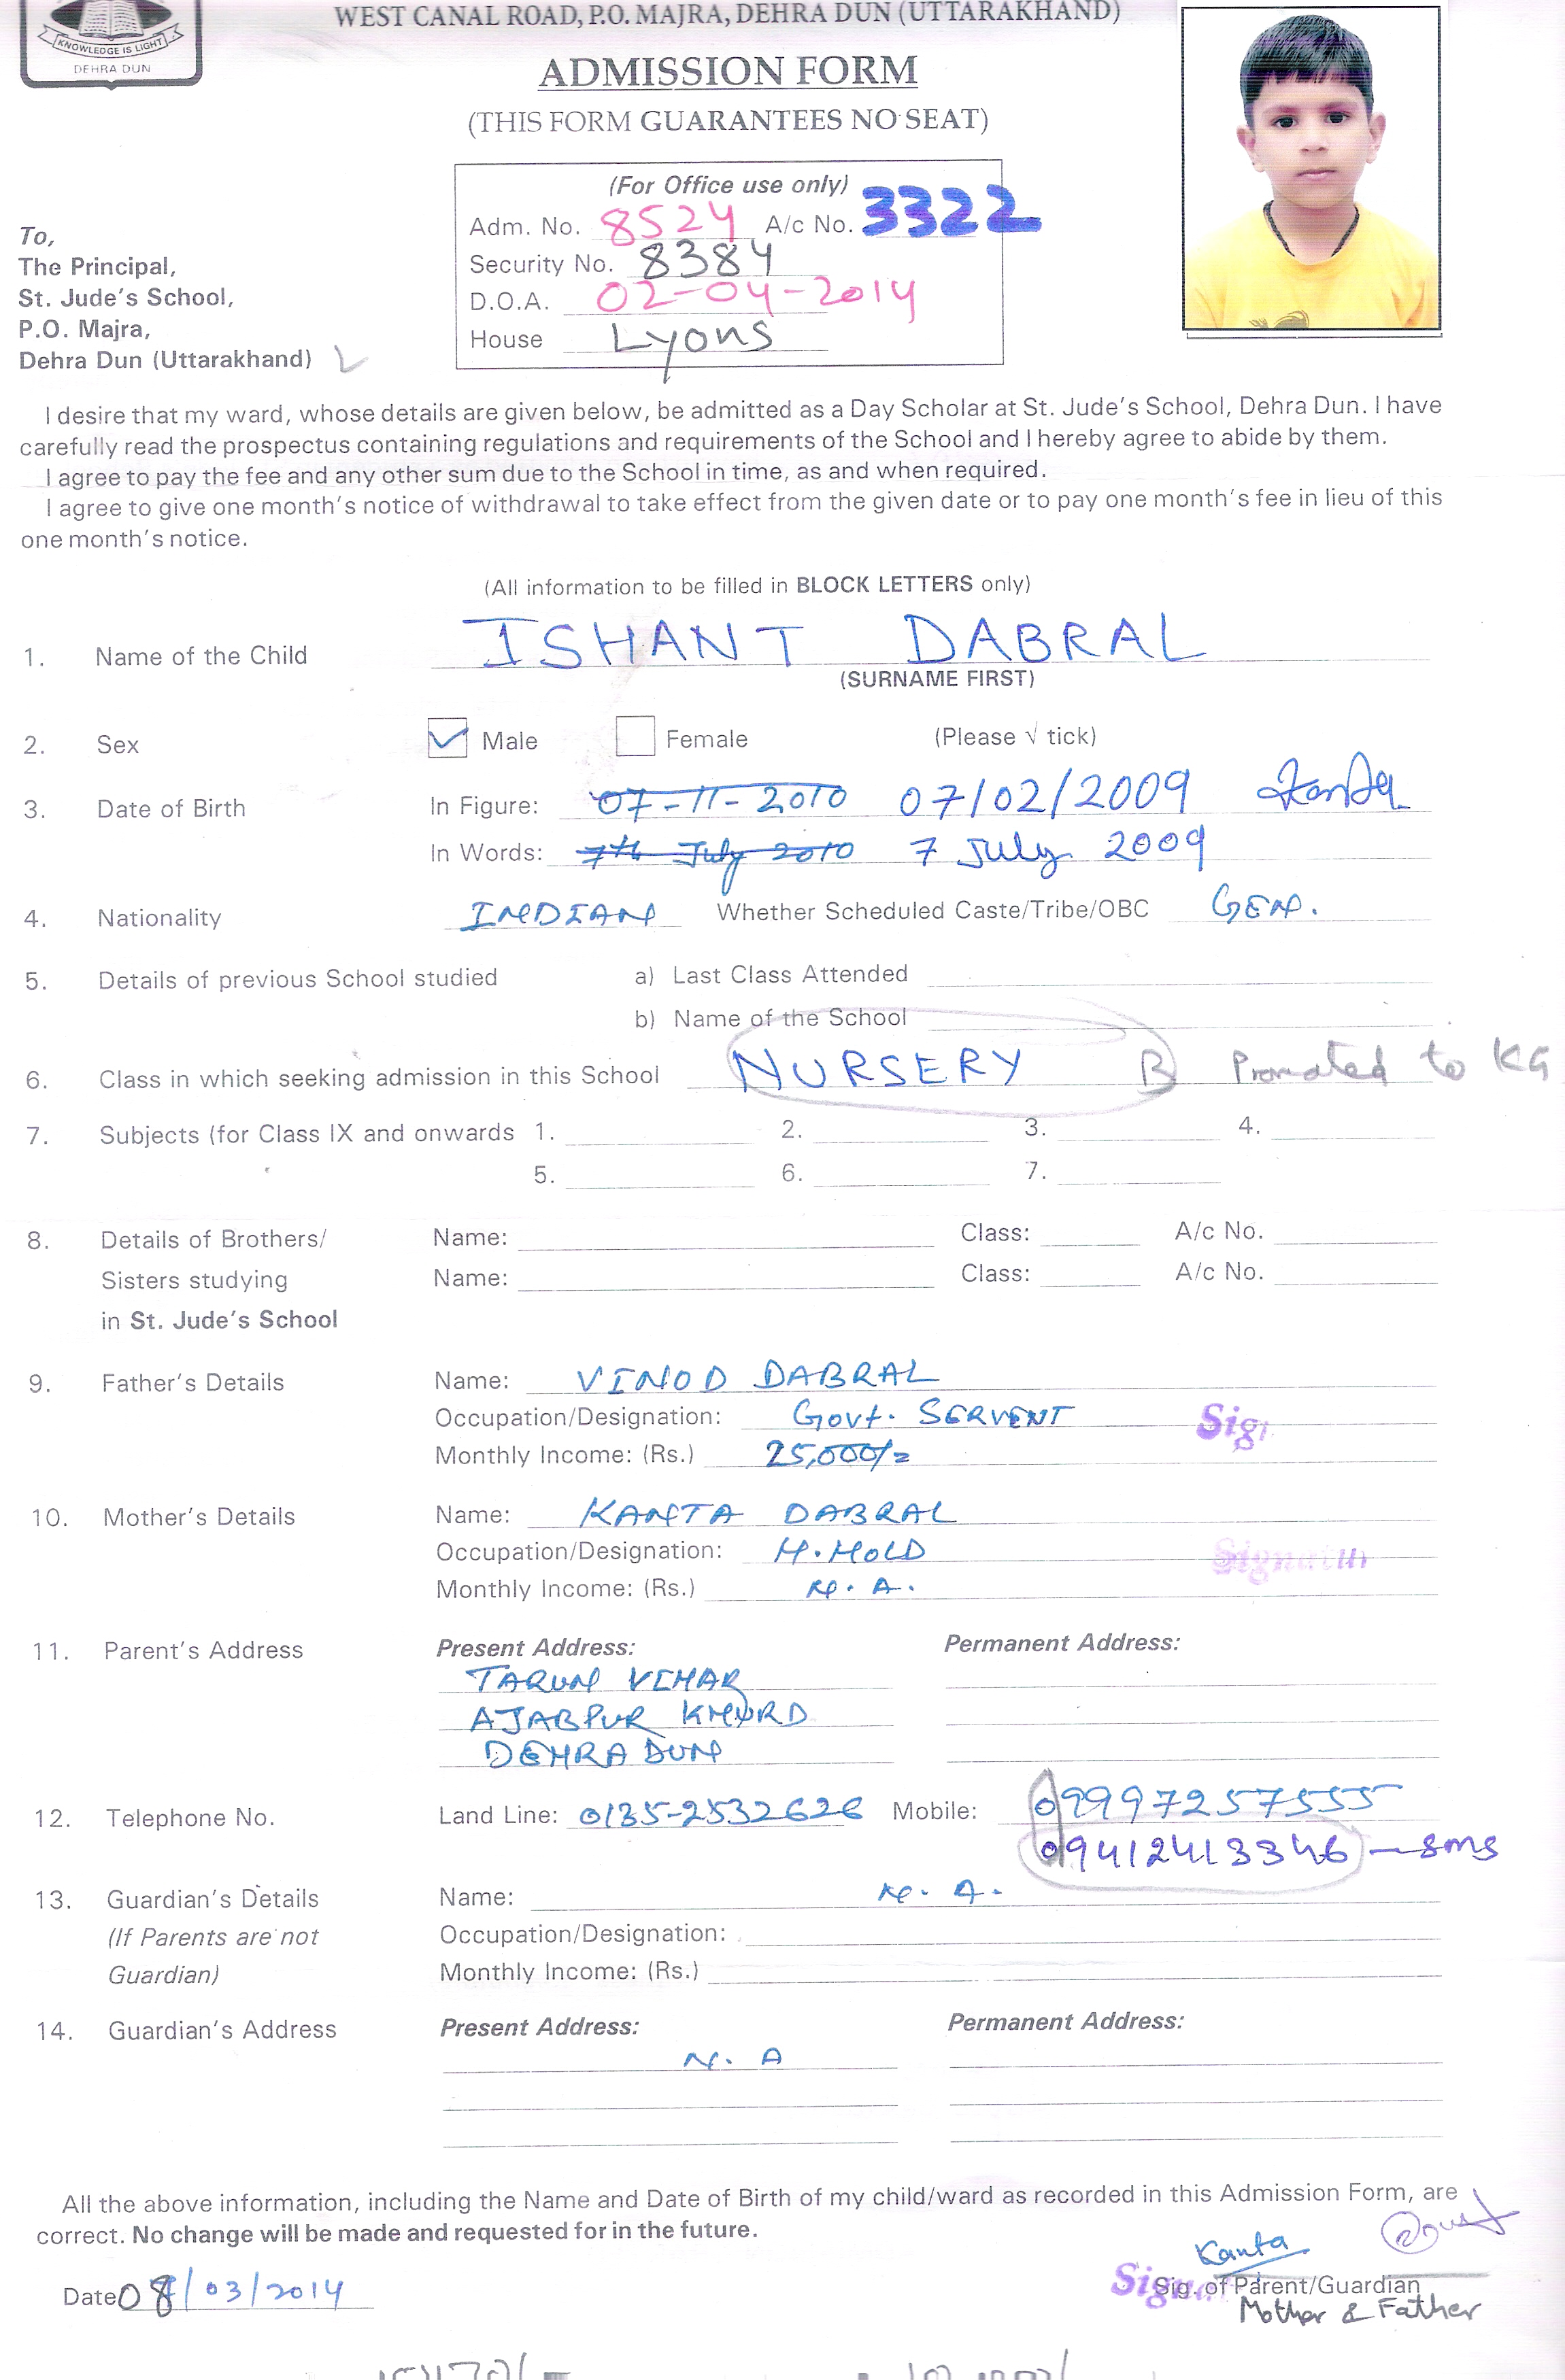 KNOWLEDGE IS LIGHT
DEHRA DUN
WEST CANAL ROAD, P.O. MAJRA, DEHRA DUN (UTTARAKHAND)
ADMISSION FORM
(THIS FORM GUARANTEES NO SEAT)
(For Office use only)
Adm. No. 8524 A/c No. 3322
Security No. 8384
D.O.A. 02-04-2014
House Lyons
To,
The Principal,
St. Jude's School,
P.O. Majra,
Dehra Dun (Uttarakhand)
I desire that my ward, whose details are given below, be admitted as a Day Scholar at St. Jude's School, Dehra Dun. I have
carefully read the prospectus containing regulations and requirements of the School and I hereby agree to abide by them.
I agree to pay the fee and any other sum due to the School in time, as and when required.
I agree to give one month's notice of withdrawal to take effect from the given date or to pay one month's fee in lieu of this
one month's notice.
(All information to be filled in BLOCK LETTERS only)
1. Name of the Child ISHANT DABRAL
(SURNAME FIRST)
2. Sex Male Female (Please √ tick)
3. Date of Birth In Figure: 07-11-2010 07/02/2009 Kanta
In Words: 7th July 2010 7 July 2009
4. Nationality INDIAN Whether Scheduled Caste/Tribe/OBC GEN.
5. Details of previous School studied a) Last Class Attended
b) Name of the School
6. Class in which seeking admission in this School NURSERY B Promoted to KG
7. Subjects (for Class IX and onwards 1. 2. 3. 4.
5. 6. 7.
8. Details of Brothers/ Name: Class: A/c No.
Sisters studying Name: Class: A/c No.
in St. Jude's School
9. Father's Details Name: VINOD DABRAL
Occupation/Designation: Govt. SERVENT Sig
Monthly Income: (Rs.) 25,000/=
10. Mother's Details Name: KANTA DABRAL
Occupation/Designation: H.HOLD
Monthly Income: (Rs.) N.A.
11. Parent's Address Present Address: Permanent Address:
TARUN VIHAR
AJABPUR KHURD
DEHRADUN
12. Telephone No. Land Line: 0135-2532626 Mobile: 09997257555
09412413346 - sms
13. Guardian's Details Name: N.A.
(If Parents are not Occupation/Designation:
Guardian) Monthly Income: (Rs.)
14. Guardian's Address Present Address: Permanent Address:
N.A
All the above information, including the Name and Date of Birth of my child/ward as recorded in this Admission Form, are
correct. No change will be made and requested for in the future.
Kanta
Date 08/03/2014 Sig. of Parent/Guardian
Mother & Father